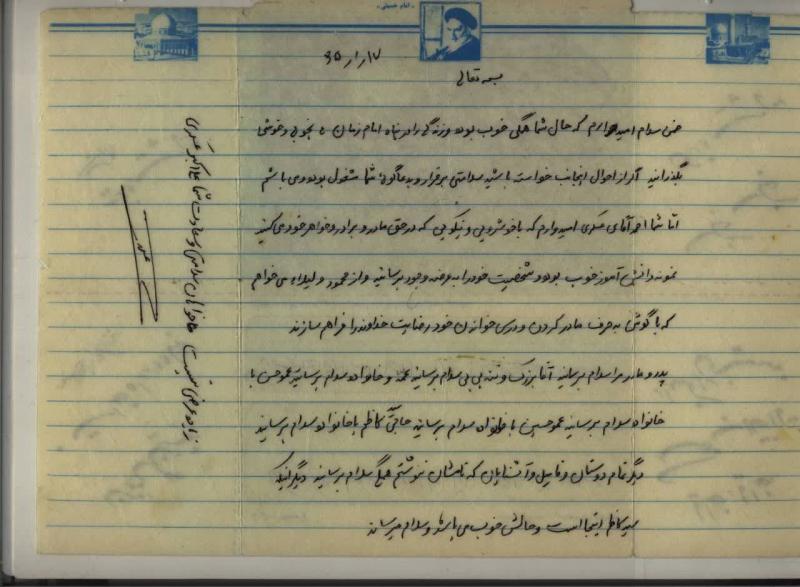 امام خمینی
۶۵/۱/۱۷
بسمه تعالی
ضمن سلام امیدوارم که حال شما همگی خوب بوده و زندگی را در پناه امام زمان به خوبی و خوشی
بگذرانید اگر از احوال اینجانب خواسته باشید سلامتی برقرار و بدعاگوئی شما مشغول بوده و می باشم
امّا شما احمد آقای عسکری امیدوارم که با خوشرویی و نیکویی که در حق مادر و برادر و خواهر خود می کنید
نمونه دانش آموز خوب بوده و شخصیت خود را به عرضه وجود برسانید و از محمود و لیلا می خواهم
که با گوش به حرف مادر کردن و درس خواندن خود رضایت خداوند را فراهم سازند
پدر و مادر مرا سلام برسانید آقا بزرگ و ننه بی بی سلام برسانید عمه و خانواده سلام برسانید عمو حسن با
خانواده سلام برسانید عمو حسین با خانواده سلام برسانید حاجی کاظم با خانواده سلام برسانید
دیگر تمام دوستان و فامیل و آشنایان که نامشان ننوشتم همگی سلام برسانید دیگر اینکه
سید کاظم اینجا است و حالش خوب می باشد و سلام میرساند
زیاده عرضی نیست خواهان سلامتی و سعادت شما علی اکبر عسکری